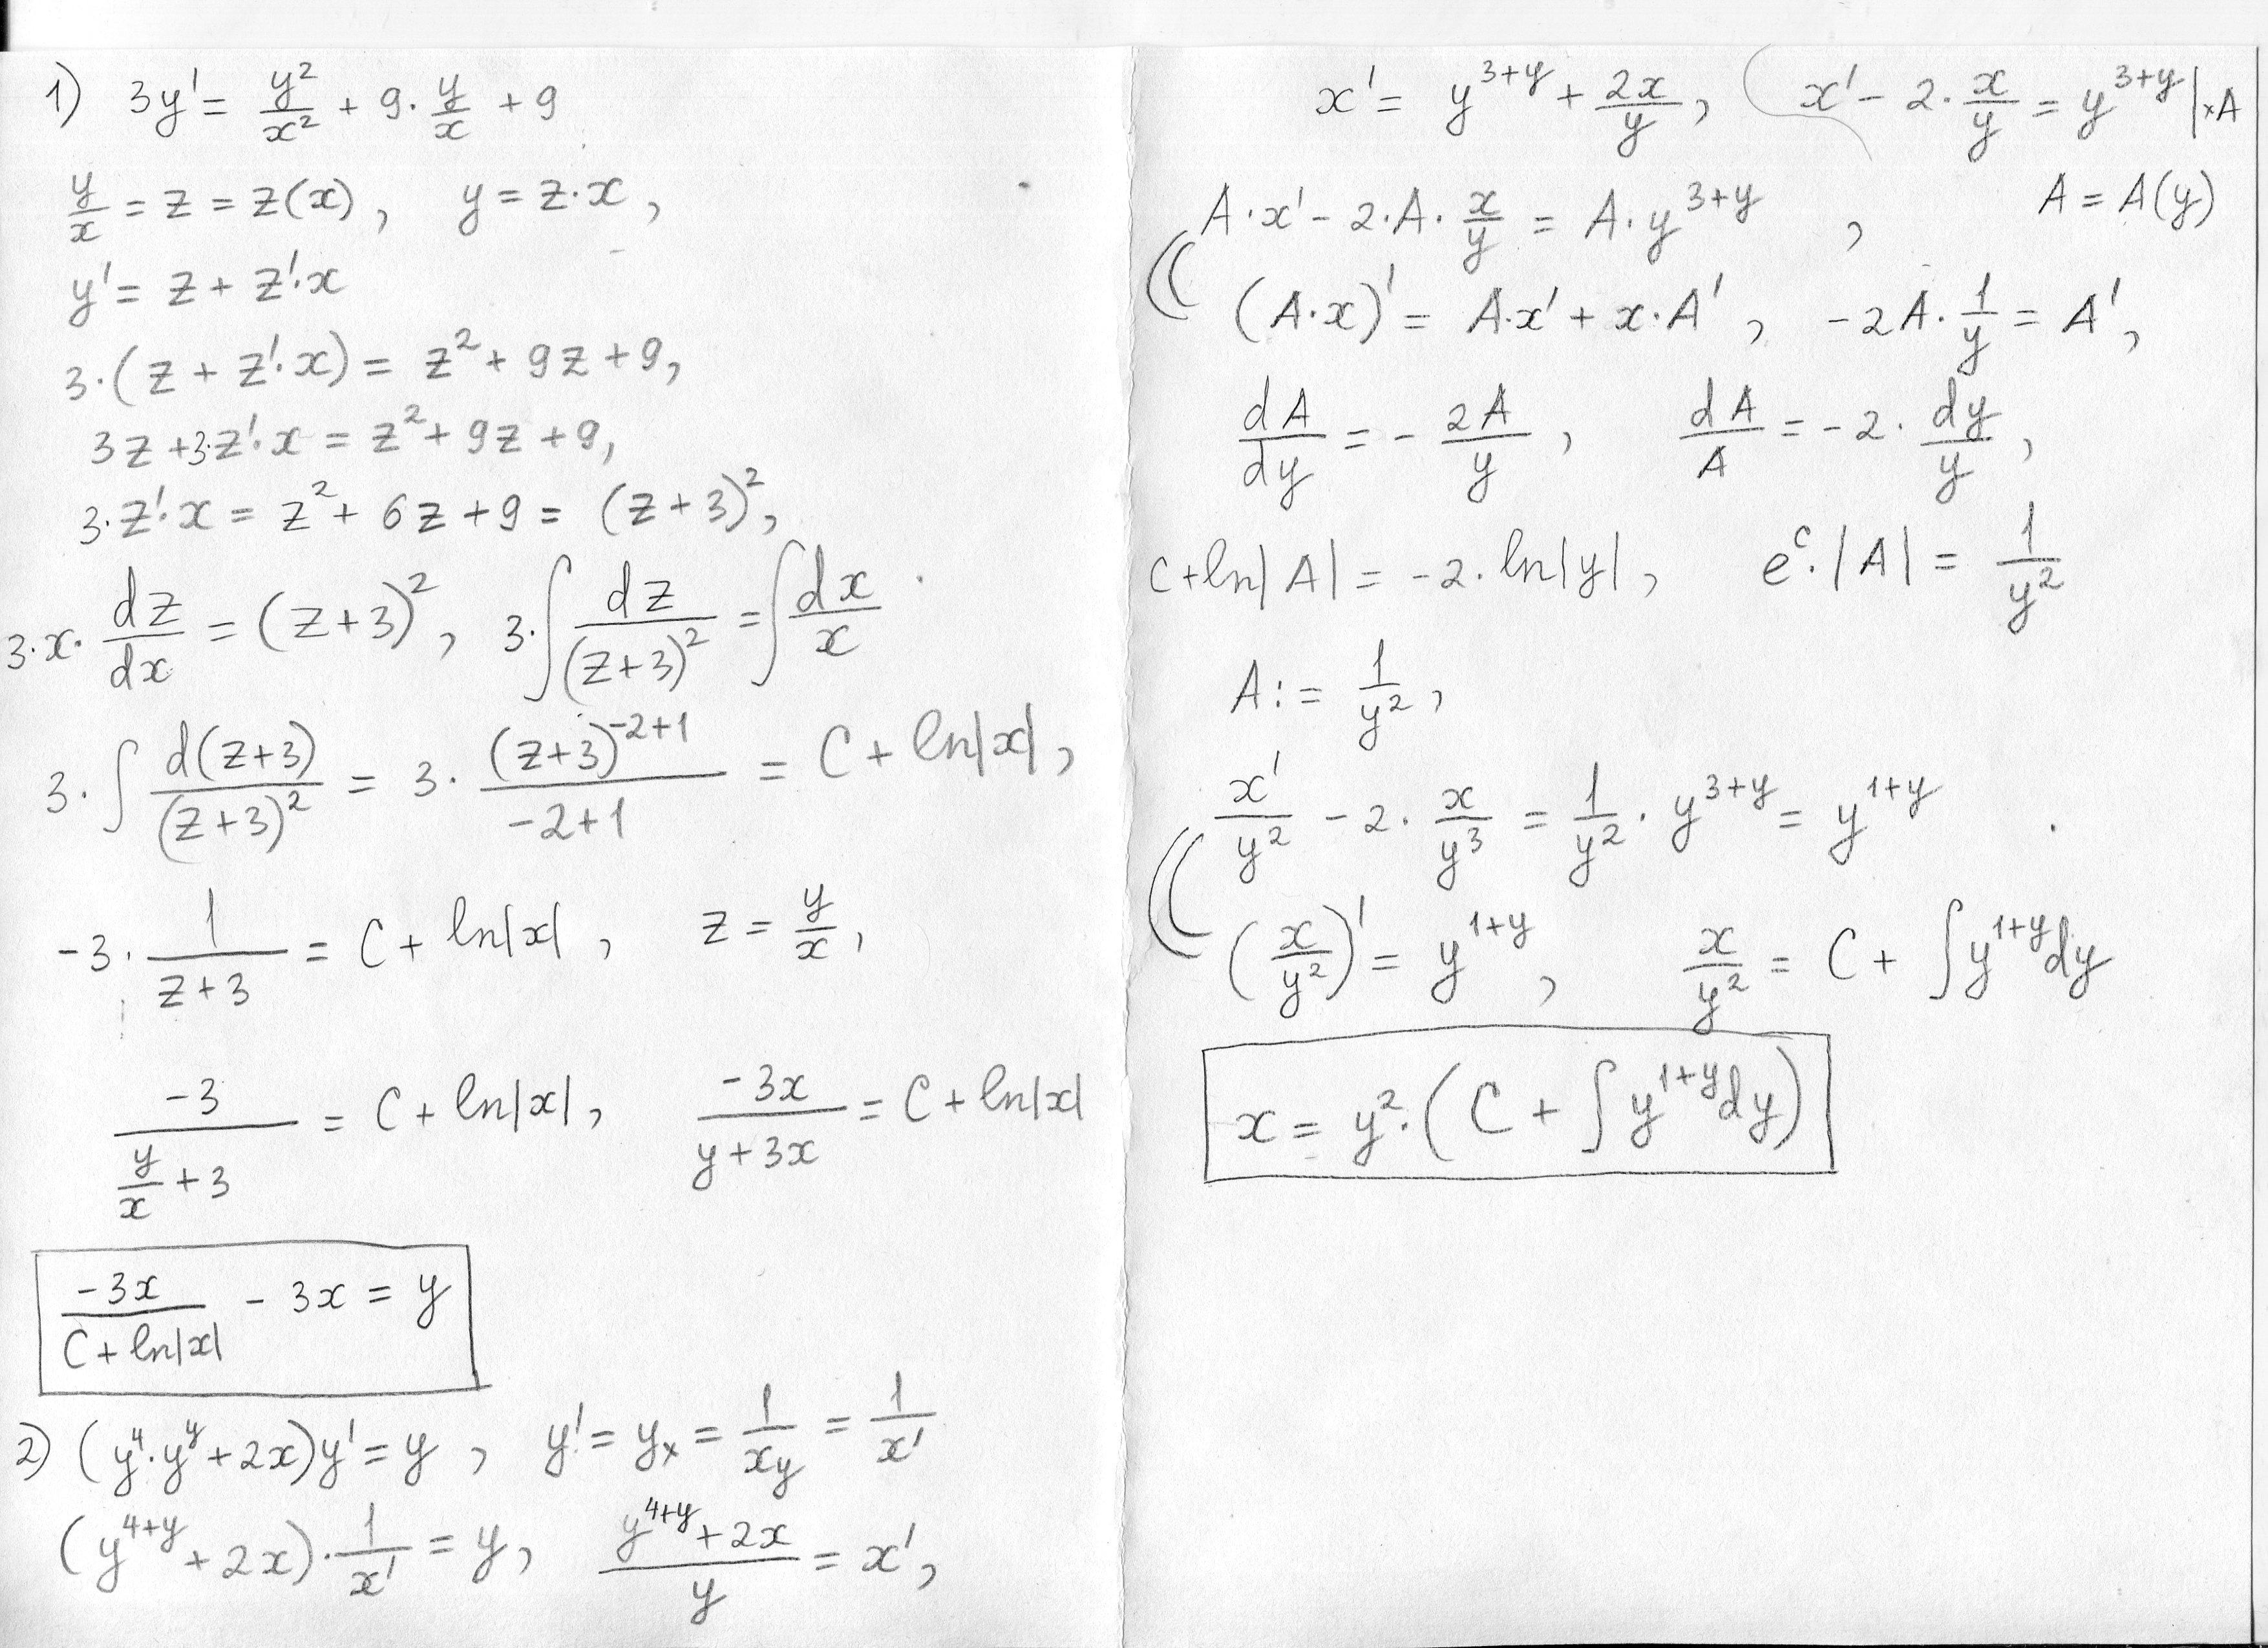 1) 3y' = y²/x² + 9·y/x + 9
y/x = z = z(x), y = z·x,
y' = z + z'·x
3·(z + z'·x) = z² + 9z + 9,
3z + 3·z'·x = z² + 9z + 9,
3·z'·x = z² + 6z + 9 = (z+3)²,
3·x·dz/dx = (z+3)², 3·∫dz/(z+3)² = ∫dx/x
3·∫d(z+3)/(z+3)² = 3·(z+3)^(-2+1)/(-2+1) = C + ln|x|,
-3·1/(z+3) = C + ln|x|, z = y/x,
-3/(y/x + 3) = C + ln|x|, -3x/(y+3x) = C + ln|x|
-3x/(C + ln|x|) - 3x = y
2) (y⁴·y^y + 2x)y' = y, y' = yₓ = 1/x_y = 1/x'
(y^(4+y) + 2x)·1/x' = y, (y^(4+y) + 2x)/y = x',
x' = y^(3+y) + 2x/y, x' - 2·x/y = y^(3+y) |×A
A·x' - 2·A·x/y = A·y^(3+y), A = A(y)
(A·x)' = A·x' + x·A', -2A·1/y = A',
dA/dy = -2A/y, dA/A = -2·dy/y,
C + ln|A| = -2·ln|y|, e^c·|A| = 1/y²
A := 1/y²,
x'/y² - 2·x/y³ = 1/y²·y^(3+y) = y^(1+y)
(x/y²)' = y^(1+y), x/y² = C + ∫y^(1+y)dy
x = y²·(C + ∫y^(1+y)dy)